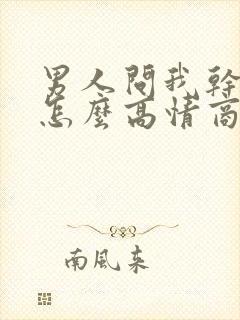 男人問我幹
怎麼高情商
南風来